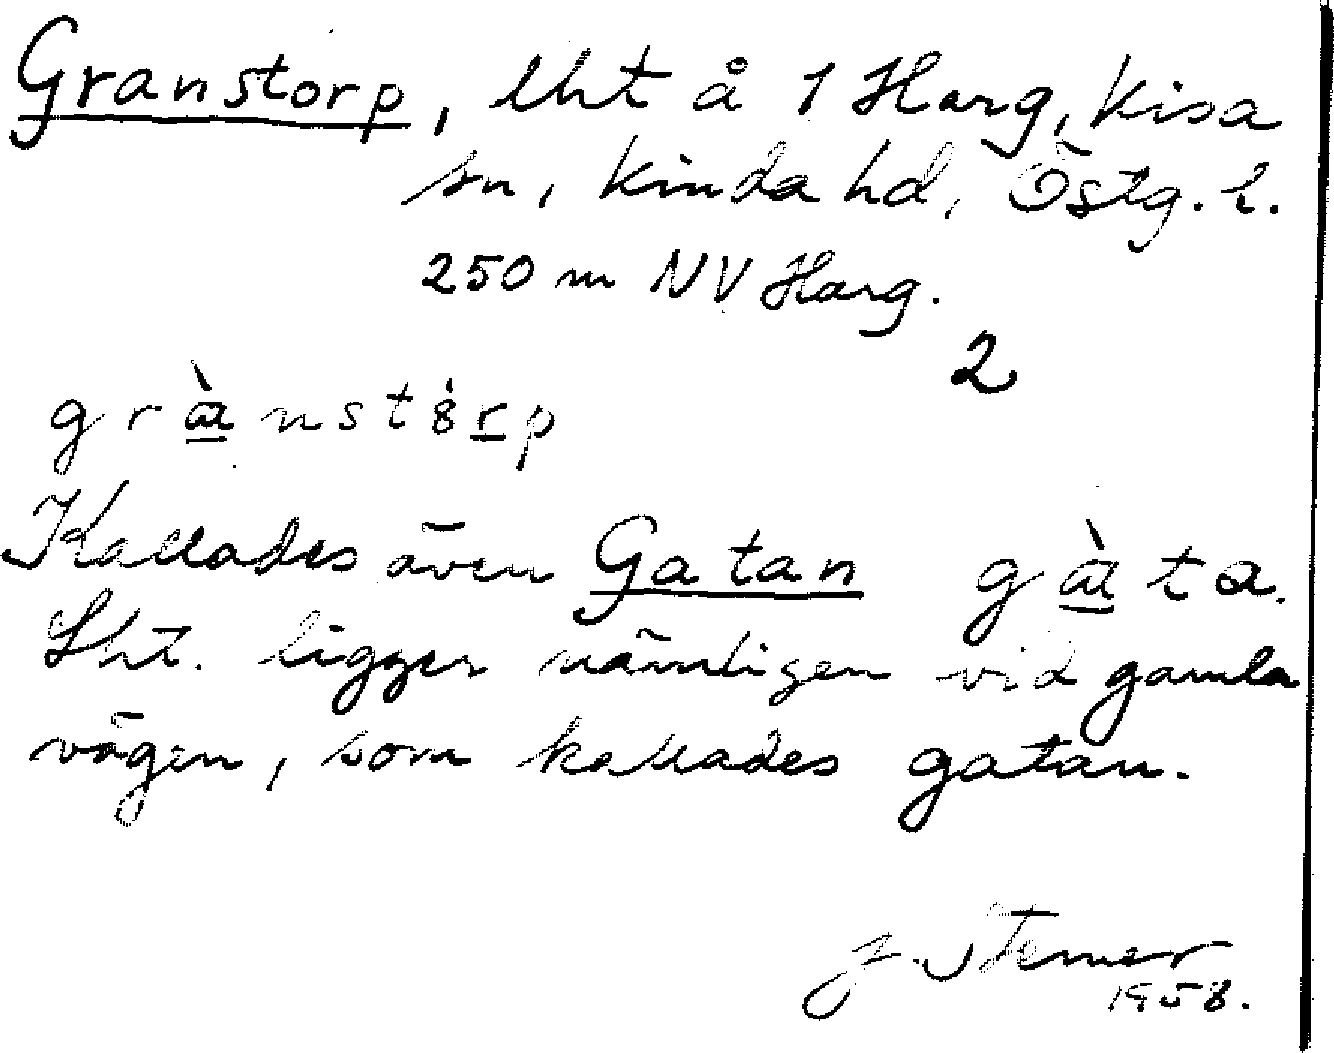 Granstorp, lht å 1 Harg, Kisa
sn, Kinda hd, Östg. l.
250 m NV Harg.
2
Kallades även Gatan
Lht. ligger nämligen vid gamla
vägen, som kallades gatan.
1958.